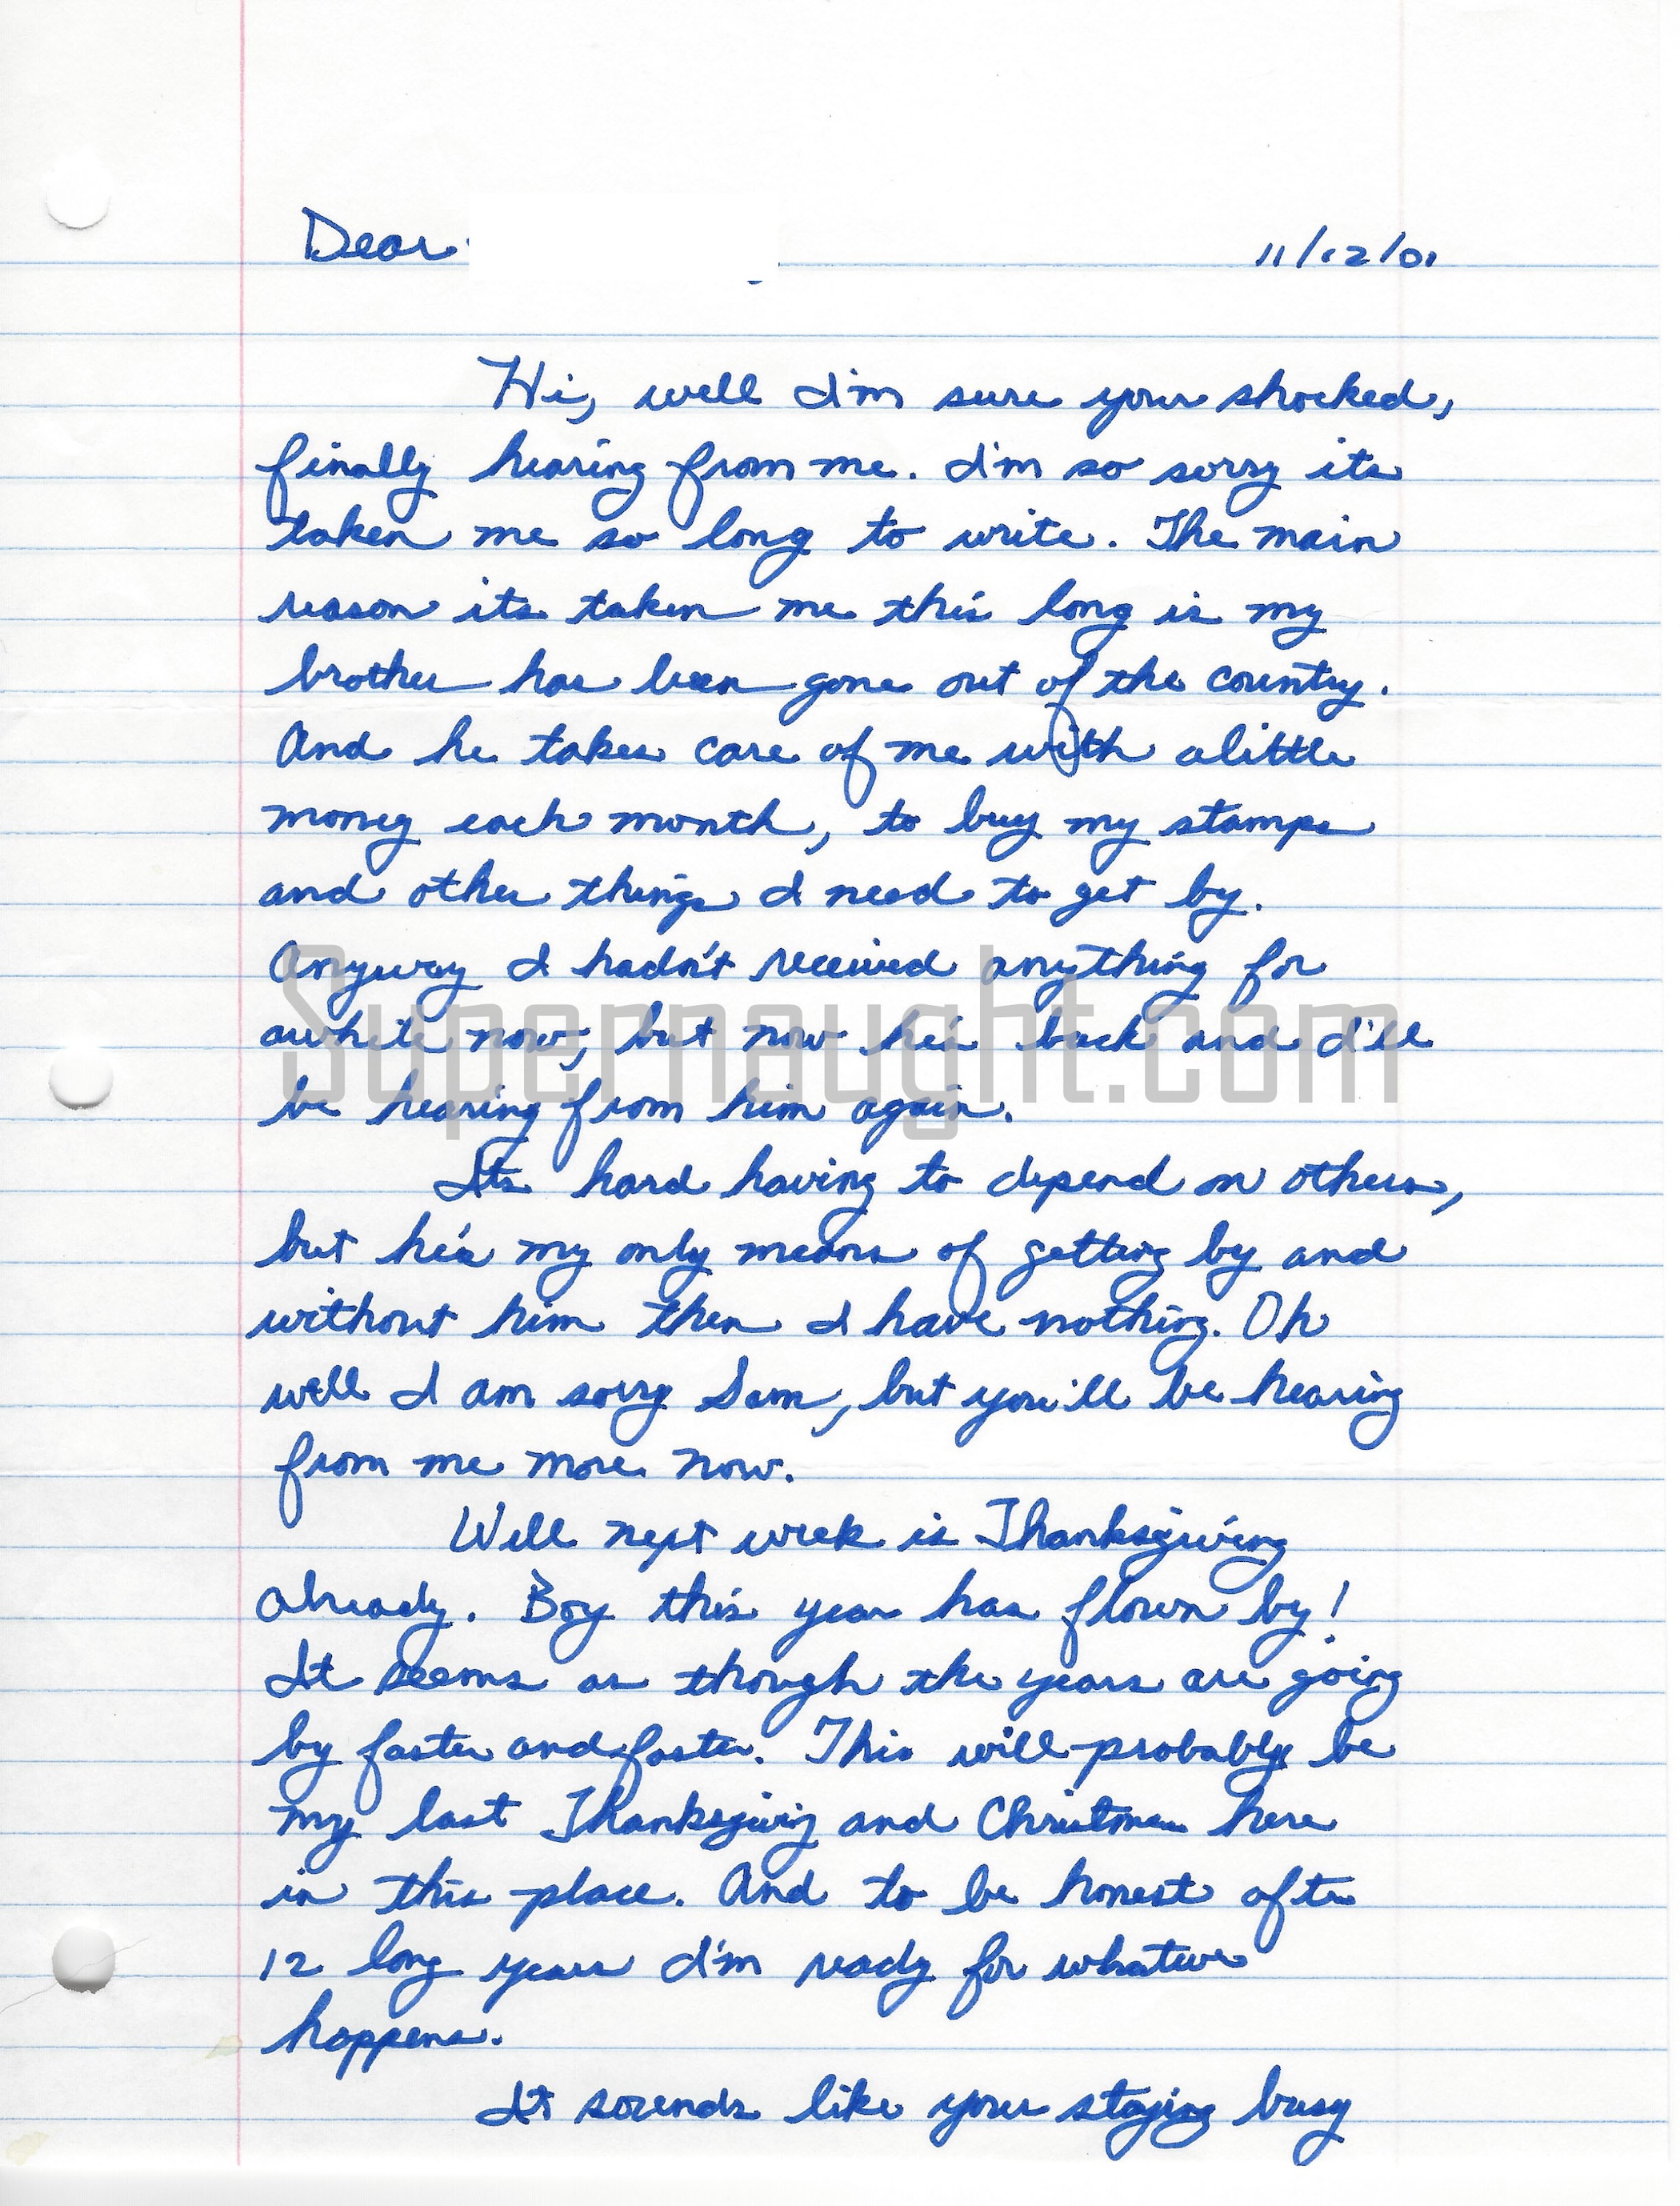 Dear 11/12/01
Hi, well I'm sure your shocked,
finally hearing from me. I'm so sorry its
taken me so long to write. The main
reason its taken me this long is my
brother has been gone out of the country.
And he takes care of me with alittle
money each month, to buy my stamps
and other things I need to get by.
Anyway I hadn't received anything for
awhile now, but now he's back and I'll
Supernaught.com
be hearing from him again.
Its hard having to depend on others,
but he's my only means of getting by and
without him then I have nothing. Oh
well I am sorry Sam, but you'll be hearing
from me more now.
Well next week is Thanksgiving
already. Boy this year has flown by!
It seems as though the years are going
by faster and faster. This will probably be
my last Thanksgiving and Christmas here
in this place. And to be honest after
12 long years I'm ready for whatever
happens.
It sounds like your staying busy